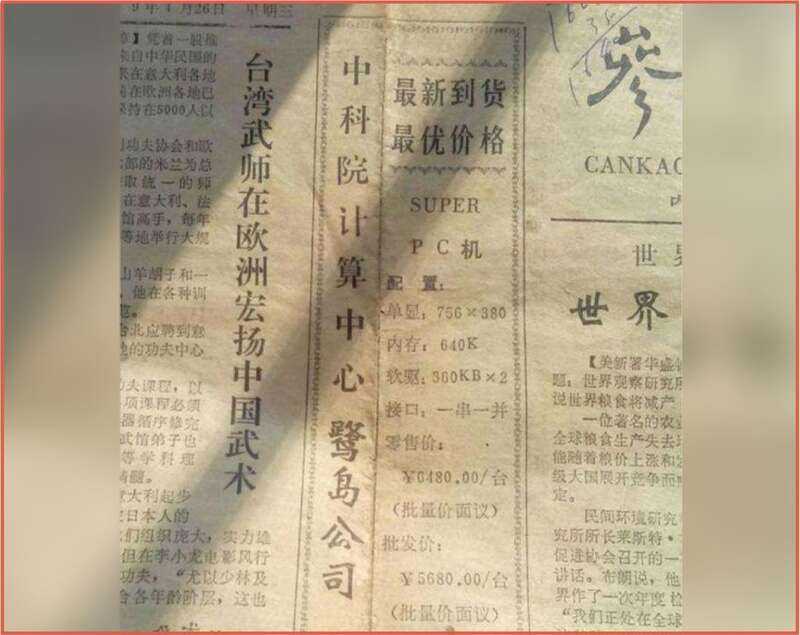 9年1月26日 星期三
凭着一股推
来自中华民国的
来在意大利各地
在欧洲各地已
保持在5000人以
功夫协会和欧
部的米兰为总
取统一的师
在意大利、法
馆高手,每年
等地举行大规
山羊胡子和一
他在各种训
台北应聘到意
的功夫中心
功夫课程,以
项课程必须
器循序修完
武馆弟子也
等学科理
精髓。
意大利起步
日本人的
们组织庞大,实力雄
但在李小龙电影风行
功夫,“尤以少林及
合各年龄阶层,这也
台湾武师在欧洲宏扬中国武术
中科院计算中心鹭岛公司
最新到货
最优价格
SUPER
PC机
配置:
单显:756×380
内存:640K
软驱:360KB×2
接口:一串一并
零售价:
¥6480.00/台
(批量价面议)
批发价:
¥5680.00/台
(批量价面议)
参
CANKAO
内
世界
世界
【美新署华盛
题:世界观察研究所
说世界粮食将减产
一位著名的农业
全球粮食生产失去
能随着粮价上涨和
级大国展开竞争而
定。
民间环境研究
究所所长莱斯特·
促进协会召开的一
讲话。布朗说,他
界作了一次年度检
“我们正处在全球